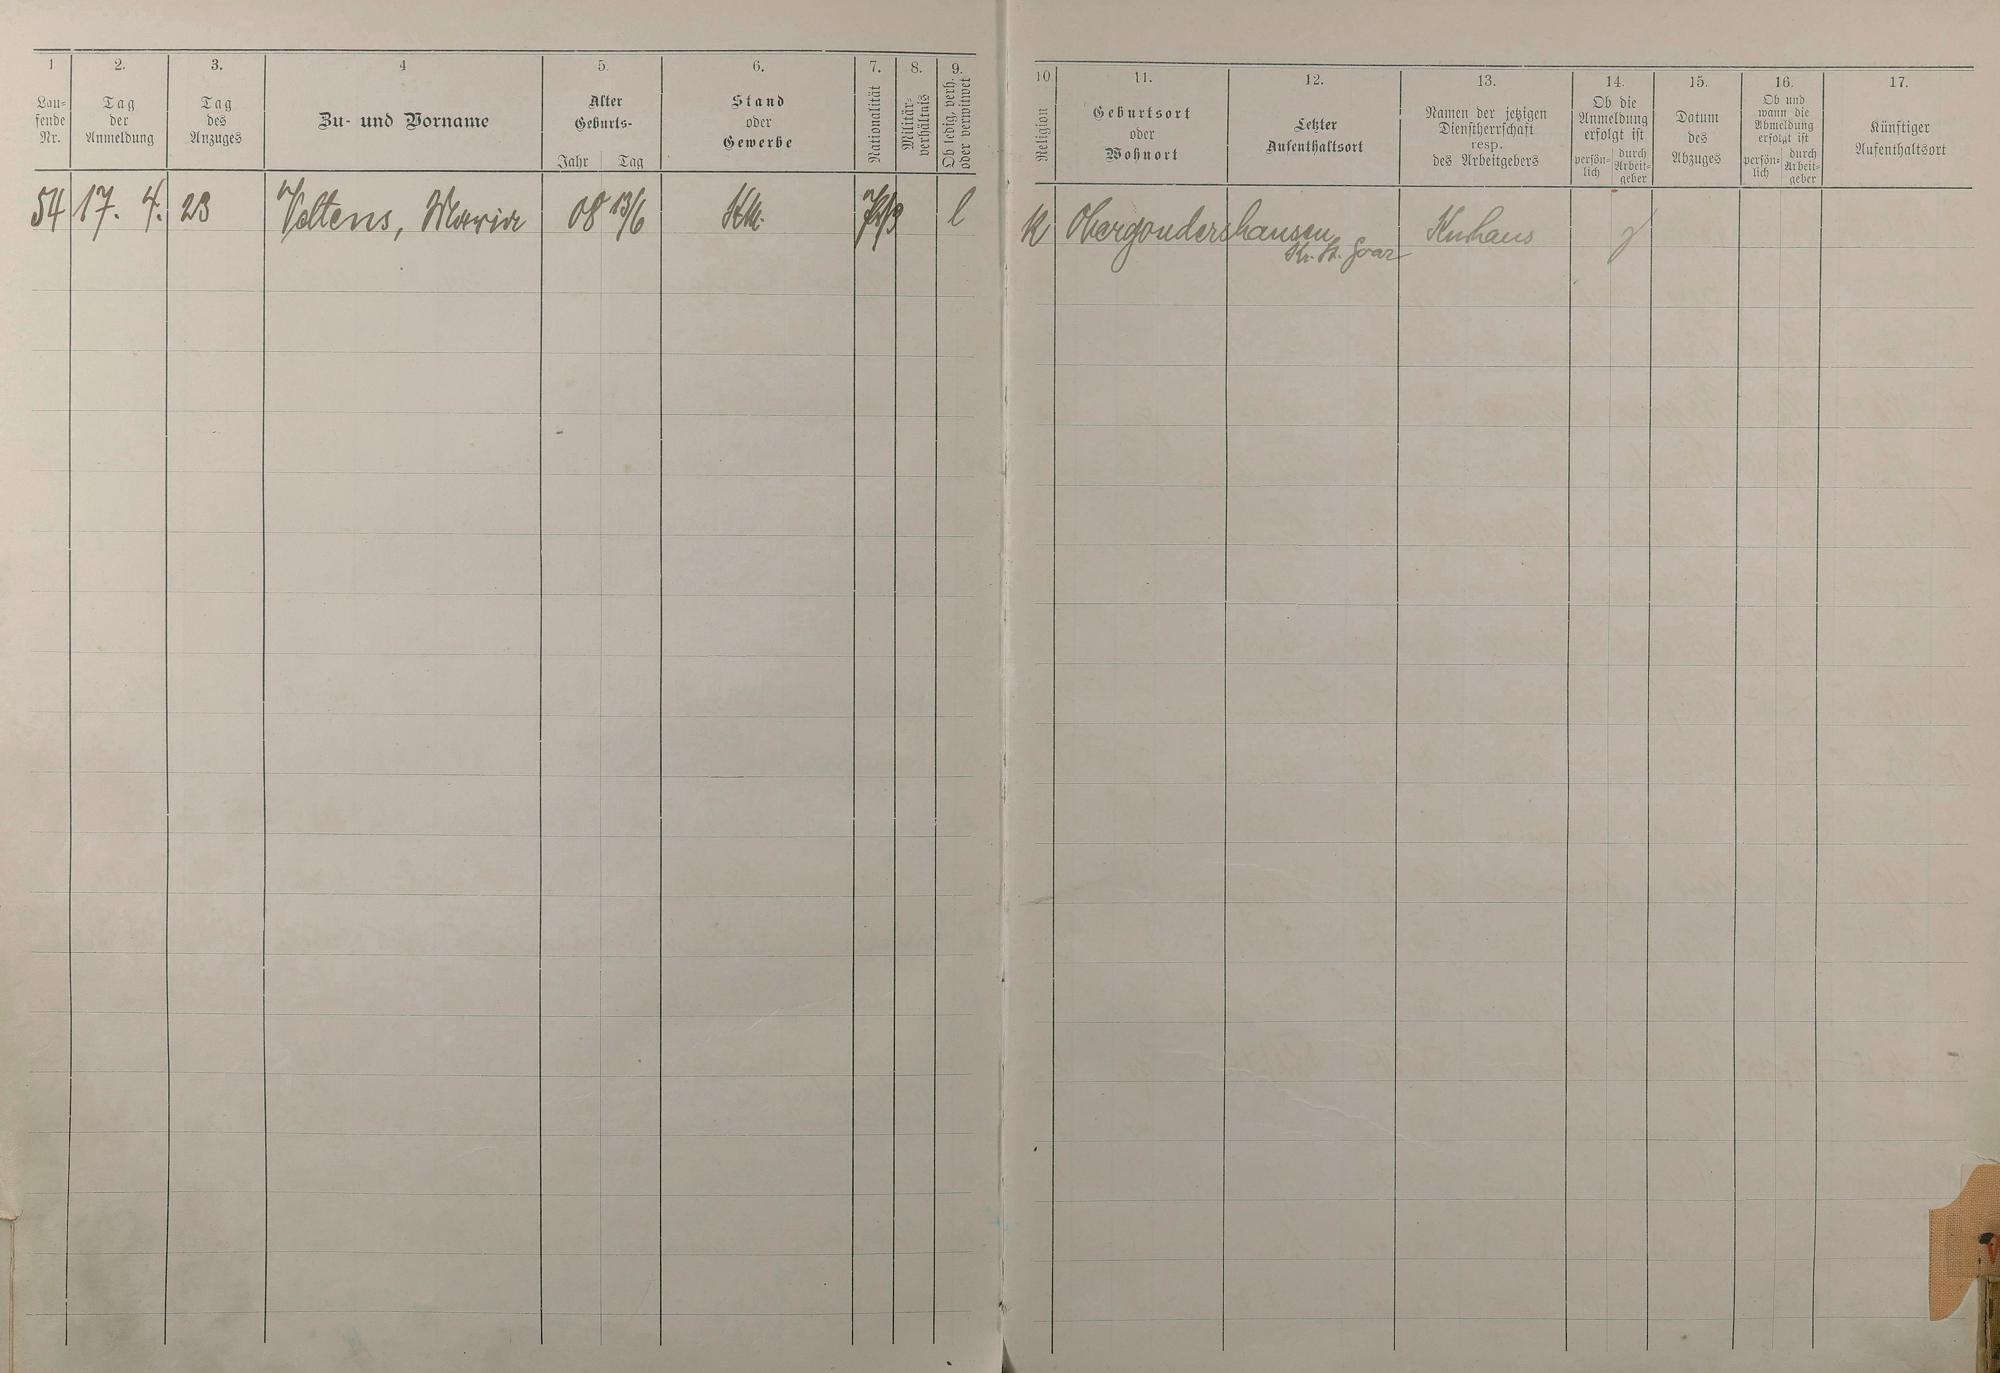 1
2.
3.
4
5.
6.
7.
8.
9.
10
11.
12.
13.
14.
15.
16.
17.
Lau-
fende
Nr.
Tag
der
Anmeldung
Tag
des
Anzuges
Zu- und Vorname
Alter
Geburts-
Jahr
Tag
Stand
oder
Gewerbe
Nationalität
Militär-
verhältnis
Ob ledig, verh.
oder verwitwet
Religion
Geburtsort
oder
Wohnort
Letzter
Aufenthaltsort
Namen der jetzigen
Dienstherrschaft
resp.
des Arbeitgebers
Ob die
Anmeldung
erfolgt ist
persön-
lich
durch
Arbeit-
geber
Datum
des
Abzuges
Ob und
wann die
Abmeldung
erfolgt ist
persön-
lich
durch
Arbeit-
geber
Künftiger
Aufenthaltsort
54 17. 4. 23 Veltens, Maria 08 13/6 l K Obergondershausen Kurhaus
Kr. St. Goar